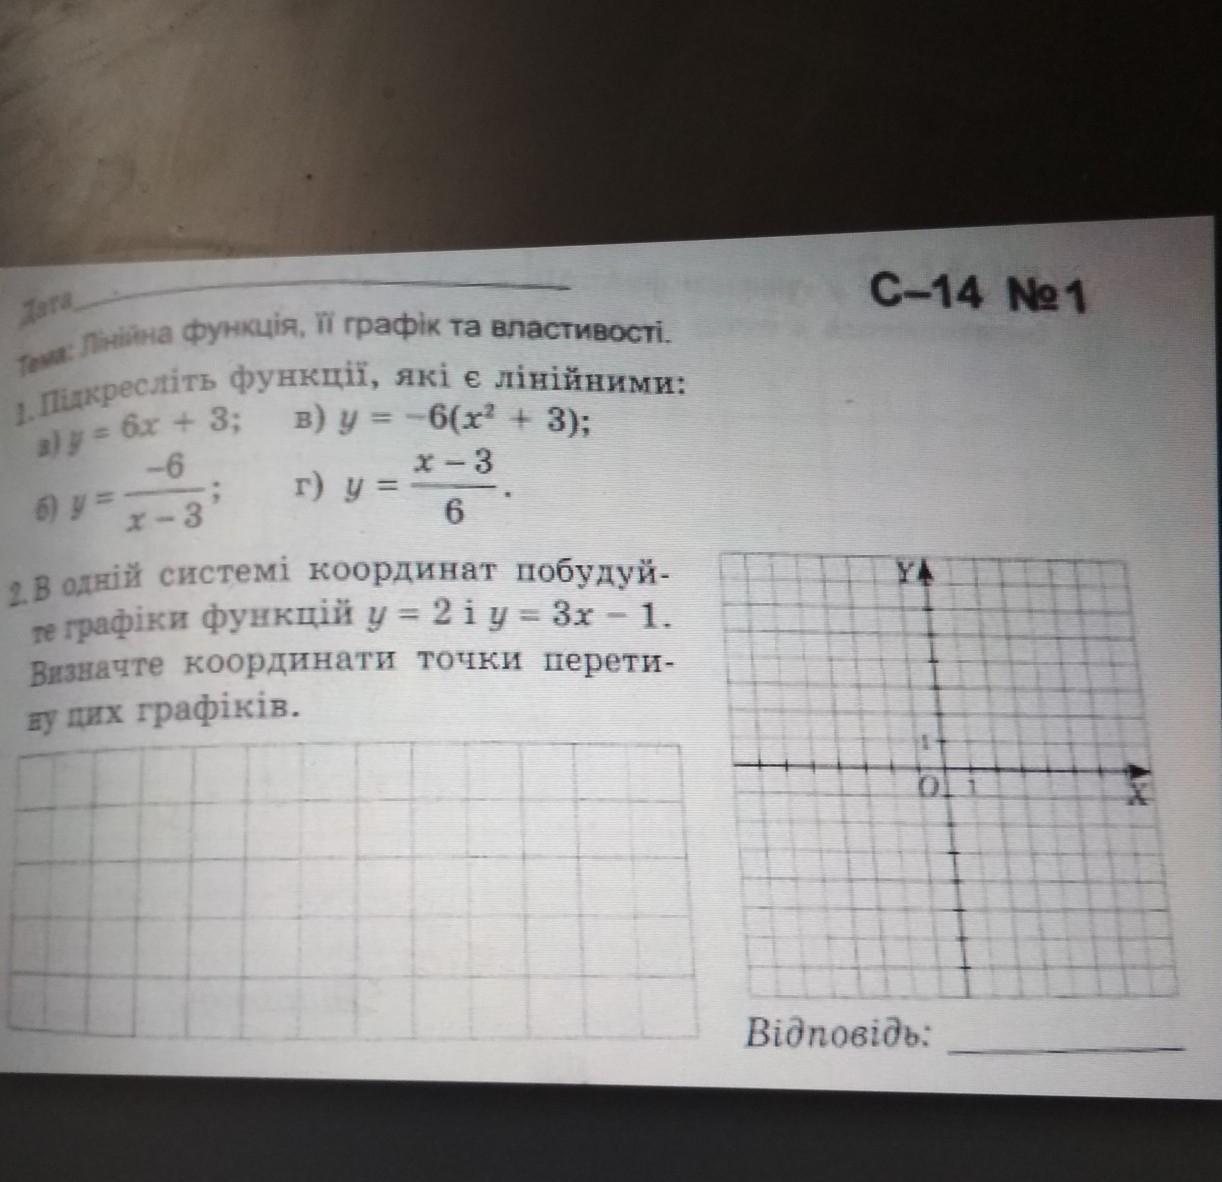 Дата
С–14 №1
Тема: Лінійна функція, її графік та властивості.
1. Підкресліть функції, які є лінійними:
а) y = 6x + 3; в) y = –6(x² + 3);
б) y = –6 / (x – 3); г) y = (x – 3) / 6.
2. В одній системі координат побудуй-
те графіки функцій y = 2 і y = 3x – 1.
Визначте координати точки перети-
ну цих графіків.
Y
1
O 1
X
Відповідь: